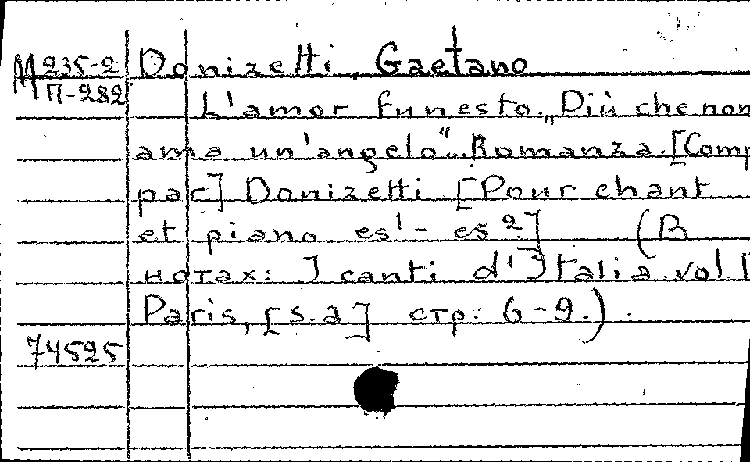 М 235-2 Donizetti, Gaetano
П-282
L'amor funesto. „Più che non
ama un'angelo“. Romanza. [Comp
par] Donizetti [Pour chant
et piano es¹ - es²] (В
нотах: I canti d'Italia vol I
Paris, [s.a] стр: 6-9.).
74525